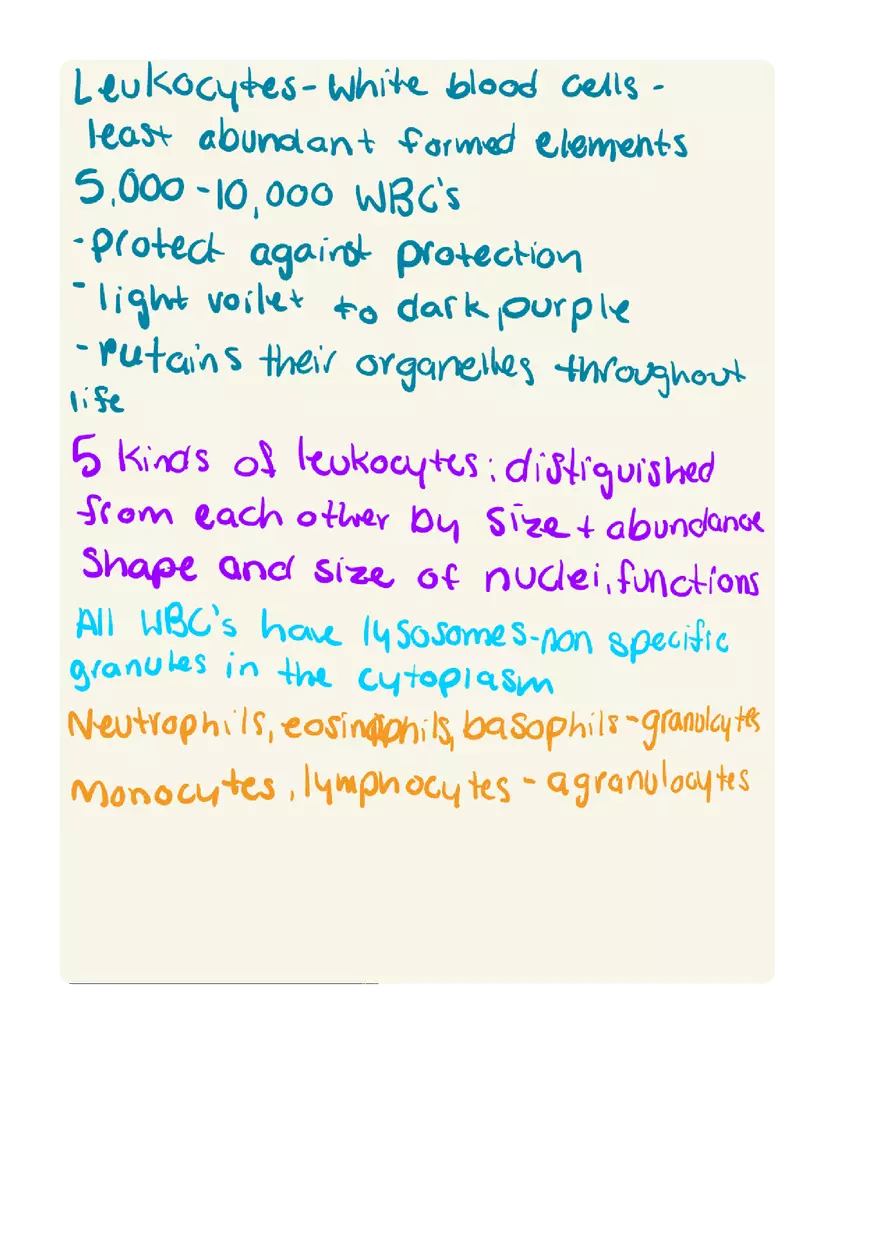 Leukocytes - White blood cells -
least abundant formed elements
5,000 - 10,000 WBC's
- protect against protection
- light voilet to dark purple
- retains their organelles throughout
life
5 kinds of leukocytes: distiguished
from each other by size + abundance
Shape and size of nuclei, functions
All WBC's have lysosomes - non specific
granules in the cytoplasm
Neutrophils, eosinophils, basophils - granulcytes
Monocytes, lymphocytes - agranulocytes